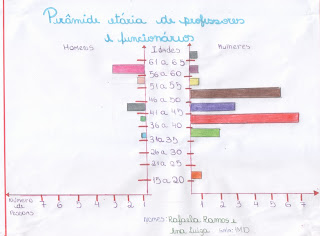 Pirâmide etária de professores
e funcionários
Homens Idades Mulheres
61 a 65
56 a 60
51 a 55
46 a 50
41 a 45
36 a 40
31 a 35
26 a 30
21 a 25
15 a 20
Número de pessoas 7 6 5 4 3 2 1 1 2 3 4 5 6 7
Nomes: Rafaela Ramos e
Ana Luiza